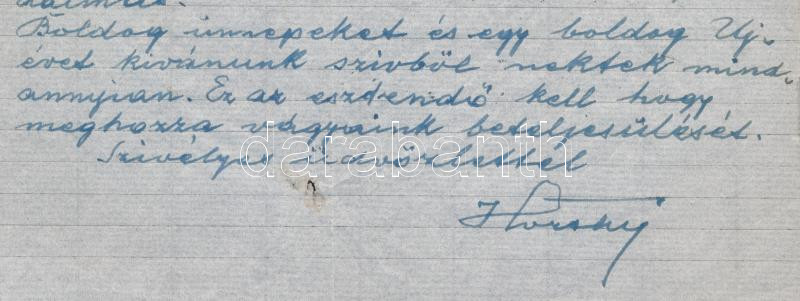 Boldog ünnepeket és egy boldog Uj-
évet kivánunk szivből nektek mind-
annyian. Ez az esztendő kell hogy
meghozza vágyaink beteljesülését.
Szivélyes üdvözlettel
darabanth.com